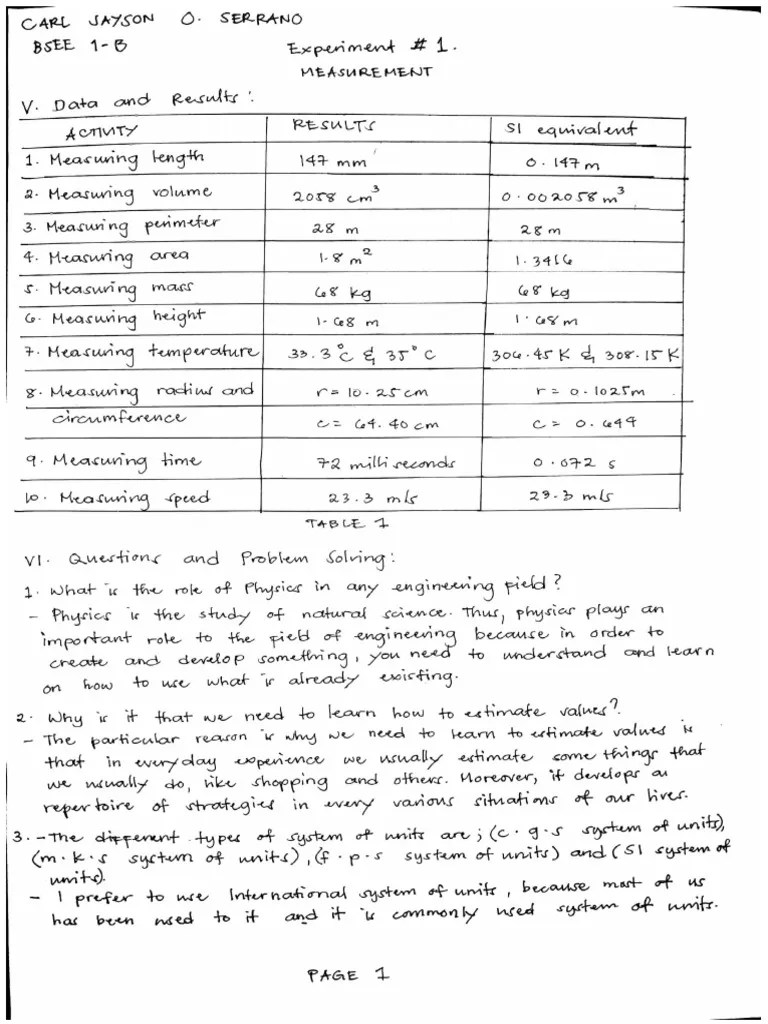 CARL JAYSON O. SERRANO
BSEE 1-B
Experiment # 1.
MEASUREMENT
V. Data and Results:
ACTIVITY RESULTS SI equivalent
1. Measuring length 147 mm 0.147 m
2. Measuring volume 2058 cm³ 0.002058 m³
3. Measuring perimeter 28 m 28 m
4. Measuring area 1.8 m² 1.3416
5. Measuring mass 68 kg 68 kg
6. Measuring height 1.68 m 1.68 m
7. Measuring temperature 33.3°C & 35°C 306.45 K & 308.15 K
8. Measuring radius and r = 10.25 cm r = 0.1025 m
circumference c = 64.40 cm c = 0.644
9. Measuring time 72 milliseconds 0.072 s
10. Measuring speed 23.3 m/s 23.3 m/s
TABLE 1
VI. Questions and Problem Solving:
1. What is the role of Physics in any engineering field?
- Physics is the study of natural science. Thus, physics plays an
important role to the field of engineering because in order to
create and develop something, you need to understand and learn
on how to use what is already existing.
2. Why is it that we need to learn how to estimate values?
- The particular reason is why we need to learn to estimate values is
that in everyday experience we usually estimate some things that
we usually do, like shopping and others. Moreover, it develops a
repertoire of strategies in every various situations of our lives.
3. - The different types of system of units are; (c.g.s system of units),
(m.k.s system of units), (f.p.s system of units) and (SI system of
units).
- I prefer to use International system of units, because most of us
has been used to it and it is commonly used system of units.
PAGE 1